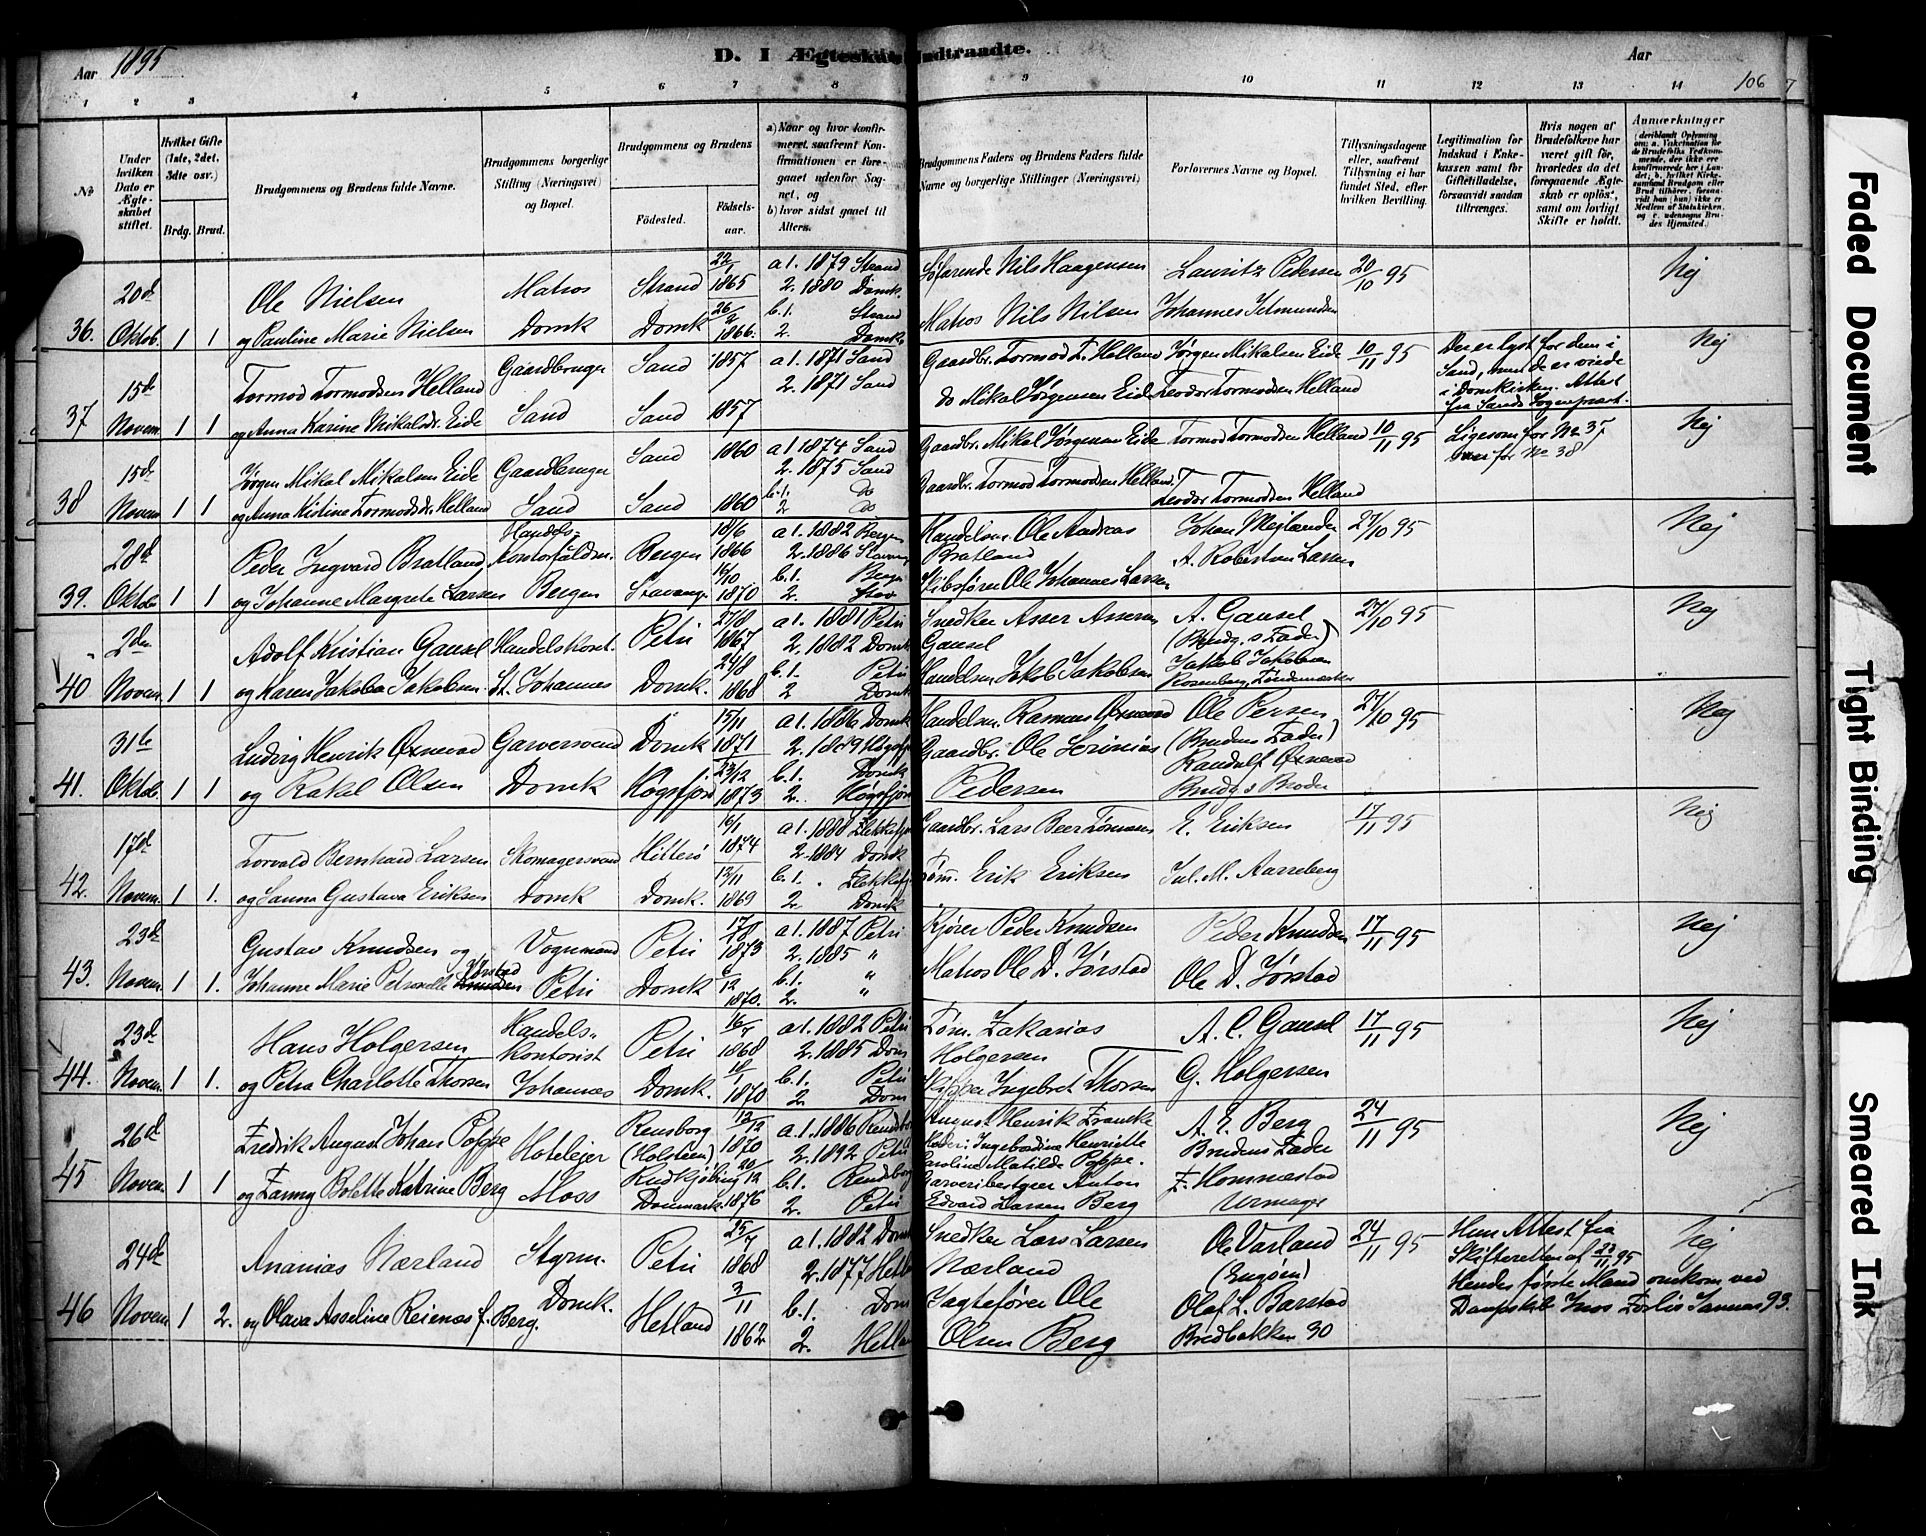 Aar 1895
D. I Ægteskab Indtraadte.
Aar
106
1 2 3 4 5 6 7 8 9 10 11 12 13 14
No
Under hvilken Dato er Ægteskabet stiftet.
Hvilket Gifte (1ste, 2det, 3dte osv.)
Brdg. Brud.
Brudgommens og Brudens fulde Navne.
Brudgommens borgerlige Stilling (Næringsvei) og Bopæl.
Brudgommens og Brudens
Fødested.
Fødselsaar.
a) Naar og hvor konfirmeret, saafremt Konfirmationen er foregaaet udenfor Sognet, og
b) hvor sidst gaaet til Alters.
Brudgommens Faders og Brudens Faders fulde Navne og borgerlige Stillinger (Næringsvei)
Forlovernes Navne og Bopæl.
Tillysningsdagene eller, saafremt Tillysning ei har fundet Sted, efter hvilken Bevilling.
Legitimation for Indskud i Enkekassen samt for Giftetilladelse, forsaavidt saadan tiltrænges.
Hvis nogen af Brudefolkene har været gift før, hvorledes da det foregaaende Ægteskab er opløst, samt om lovligt Skifte er holdt.
Anmærkninger
36. 20d Oktob. 1 1
Ole Nielsen
og Pauline Marie Nielsen
Matros
Domk
Strand 22/1 1865
Domk 26/2 1866.
a 1. 1879 Strand
2. 1880 Domk.
b. 1. Strand
2. Domk
Søfarende Nils Haagensen
Matros Nils Nilsen
Lauritz Pedersen
Johannes
20/10 95
Nej
37 15d Novem 1 1
Tormod Tormodsen Helland
og Anna Karine Mikalsdr. Eide
Gaardbruger
Sand
Sand 1857
Sand 1857
a 1. 1871 Sand
2. 1871 Sand
Gaardbr. Tormod T. Helland
do Mikal Jørgensen Eide
Jørgen Mikalsen Eide
Teodor Tormodsen Helland
10/11 95
Der er lyst for dem i
Sand, men de er viede
i Domkirken. Attest
fra Sands Sognepræst.
Nej
38 15d Novem 1 1
Jørgen Mikal Mikalsen Eide
og Anna Kistine Tormodsdr. Helland
Gaardbruger
Sand
Sand 1860
Sand 1860
a 1 1874 Sand
2. 1875 Sand
b. 1. do
2 do
Gaardbr. Mikal Jørgensen Eide
Gaardbr. Tormod Tormodsen Helland.
Tormod Tormodsen Helland
Teodor Tormodsen Helland
10/11 95
Ligesom for No 37
for No 38
Nej
39. 28d Oktob 1 1
Peder Ingvard Bratland
og Johanne Margrete Larsen
Handels-
Bergen
Bergen 18/6 1866
Stavange 16/10 1870
a 1. 1882 Bergen
2. 1886 Stavang
b. 1. Bergn
2. Stav
Handelsm. Ole Andreas
Bratland
Skibsfører Ole Johannes Larsen
Johan Mejlænder
A. Robertson Larsen
27/10 95
Nej
40 2den Novem. 1 1
Adolf Kristian Gausel
og Karen Jakobea Jakobsen.
Handelskont.
St. Johannes
Petri 27/8 1867
Domk. 24/8 1868
a 1. 1881 Petri
2. 1882 Domk
b. 1. Petri
2 Domk
Snedker Asser Assersen
Gausel
Handelsm Jakob Jakobsen
A. Gausel
(Brudg.s Fader)
Jakob Jakobsen
Rosenberg,
27/10 95
Nej
41. 31te Oktob. 1 1
Ludvig Henrik Øxnevad
og Rakel Olsen
Garversvend
Domk
Domk 15/11 1871
Høgsfjord 23/12 1873
a 1. 1886 Domk
2. 1889 Høgsfj
b. 1. Domk
2. Høgsfjor
Handelsm. Rasmus Øxnevad
Gaardbr. Ole Serinius
Pedersen
Ole Persen
(Brudens Fader)
Randulf Øxnevad
Brudg.s Broder
27/10 95
Nej
42. 17d Novem. 1 1.
Torvald Bernhard Larsen
og Sanna Gustava Eriksen
Skomagersvend
Domk
Hitterø 6/1 1874
Domk. 13/11 1869
a 1. 1888 Flekkefj
2. 1884 Domk
b. 1. Flekkefj
2. Domk
Gaardbr. Lars Beer Tørnesen
Tøm. Erik Eriksen
E. Eriksen
Jul. M. Aarreberg
17/11 95
Nej
43. 23d Novem. 1 1.
Gustav Knudsen og
Johanne Marie Petronelle Jørstad
Vognmand
Petri
Petri 17/8 1873
Domk 6/12 1870.
a 1. 1887 Petri
2. 1885 "
b. 1. "
2. "
Kjører Peder Knudsen
Matros Ole D. Jørstad
Peder Knudsen
Ole D. Jørstad
17/11 95
Nej
44. 23d Novem. 1 1.
Hans Holgersen
og Petra Charlotte Thorsen
Handels-
kontorist
Johannes
Petri 16/7 1868
Domk. 10/1 1870
a 1. 1882 Petri
2. 1885 Dom
b. 1. Petri
2 Dom
Tøm. Zakarias
Holgersen
Skipper Ingebret Thorsen
A. C. Gausel
G. Holgersen
17/11 95
Nej
45 26d Novem. 1 1
Fredrik August Johan Poppe
og Fanny Bolette Katrine Berg
Hotelejer
Moss
Rensborg
(Holsteen) 13/12 1870
Rudkjøbing
Danmark. 20/12 1876
a. 1. 1886 Rendsbo
2. 1892 Petri
b. 1. Rendsborg
2. Petri
August Henrik Francke
Moder: Ingebordine Henriette
Caroline Matilde Poppe.
Garveribestyrer Anton
Edvard Larsen Berg
A. E. Berg
Brudens Fader
F. Hommestad
Urmager
24/11 95
Nej
46 24de Novem 1 2.
Ananias Nærland
og Olava Asseline Reienæs f. Berg.
Styrm.
Domk.
Petri 25/7 1868
Hetland 3/11 1862
a 1. 1882 Dom
2. 1877 Hetl
b. 1. Dom
2. Hetlan
Snedker Lars Larsen
Nærland
Jagtefører Ole
Olsen Berg
Ole Varland
(Engøen)
Olaf L. Barstad
Bredbakken 30
24/11 95
Hun Attest fra
Skifteretten af 23/11 95
Hendes første Mand omkom ved
Dampskib Forlis Januar 93.
Nej
Faded Document
Tight Binding
Smeared Ink